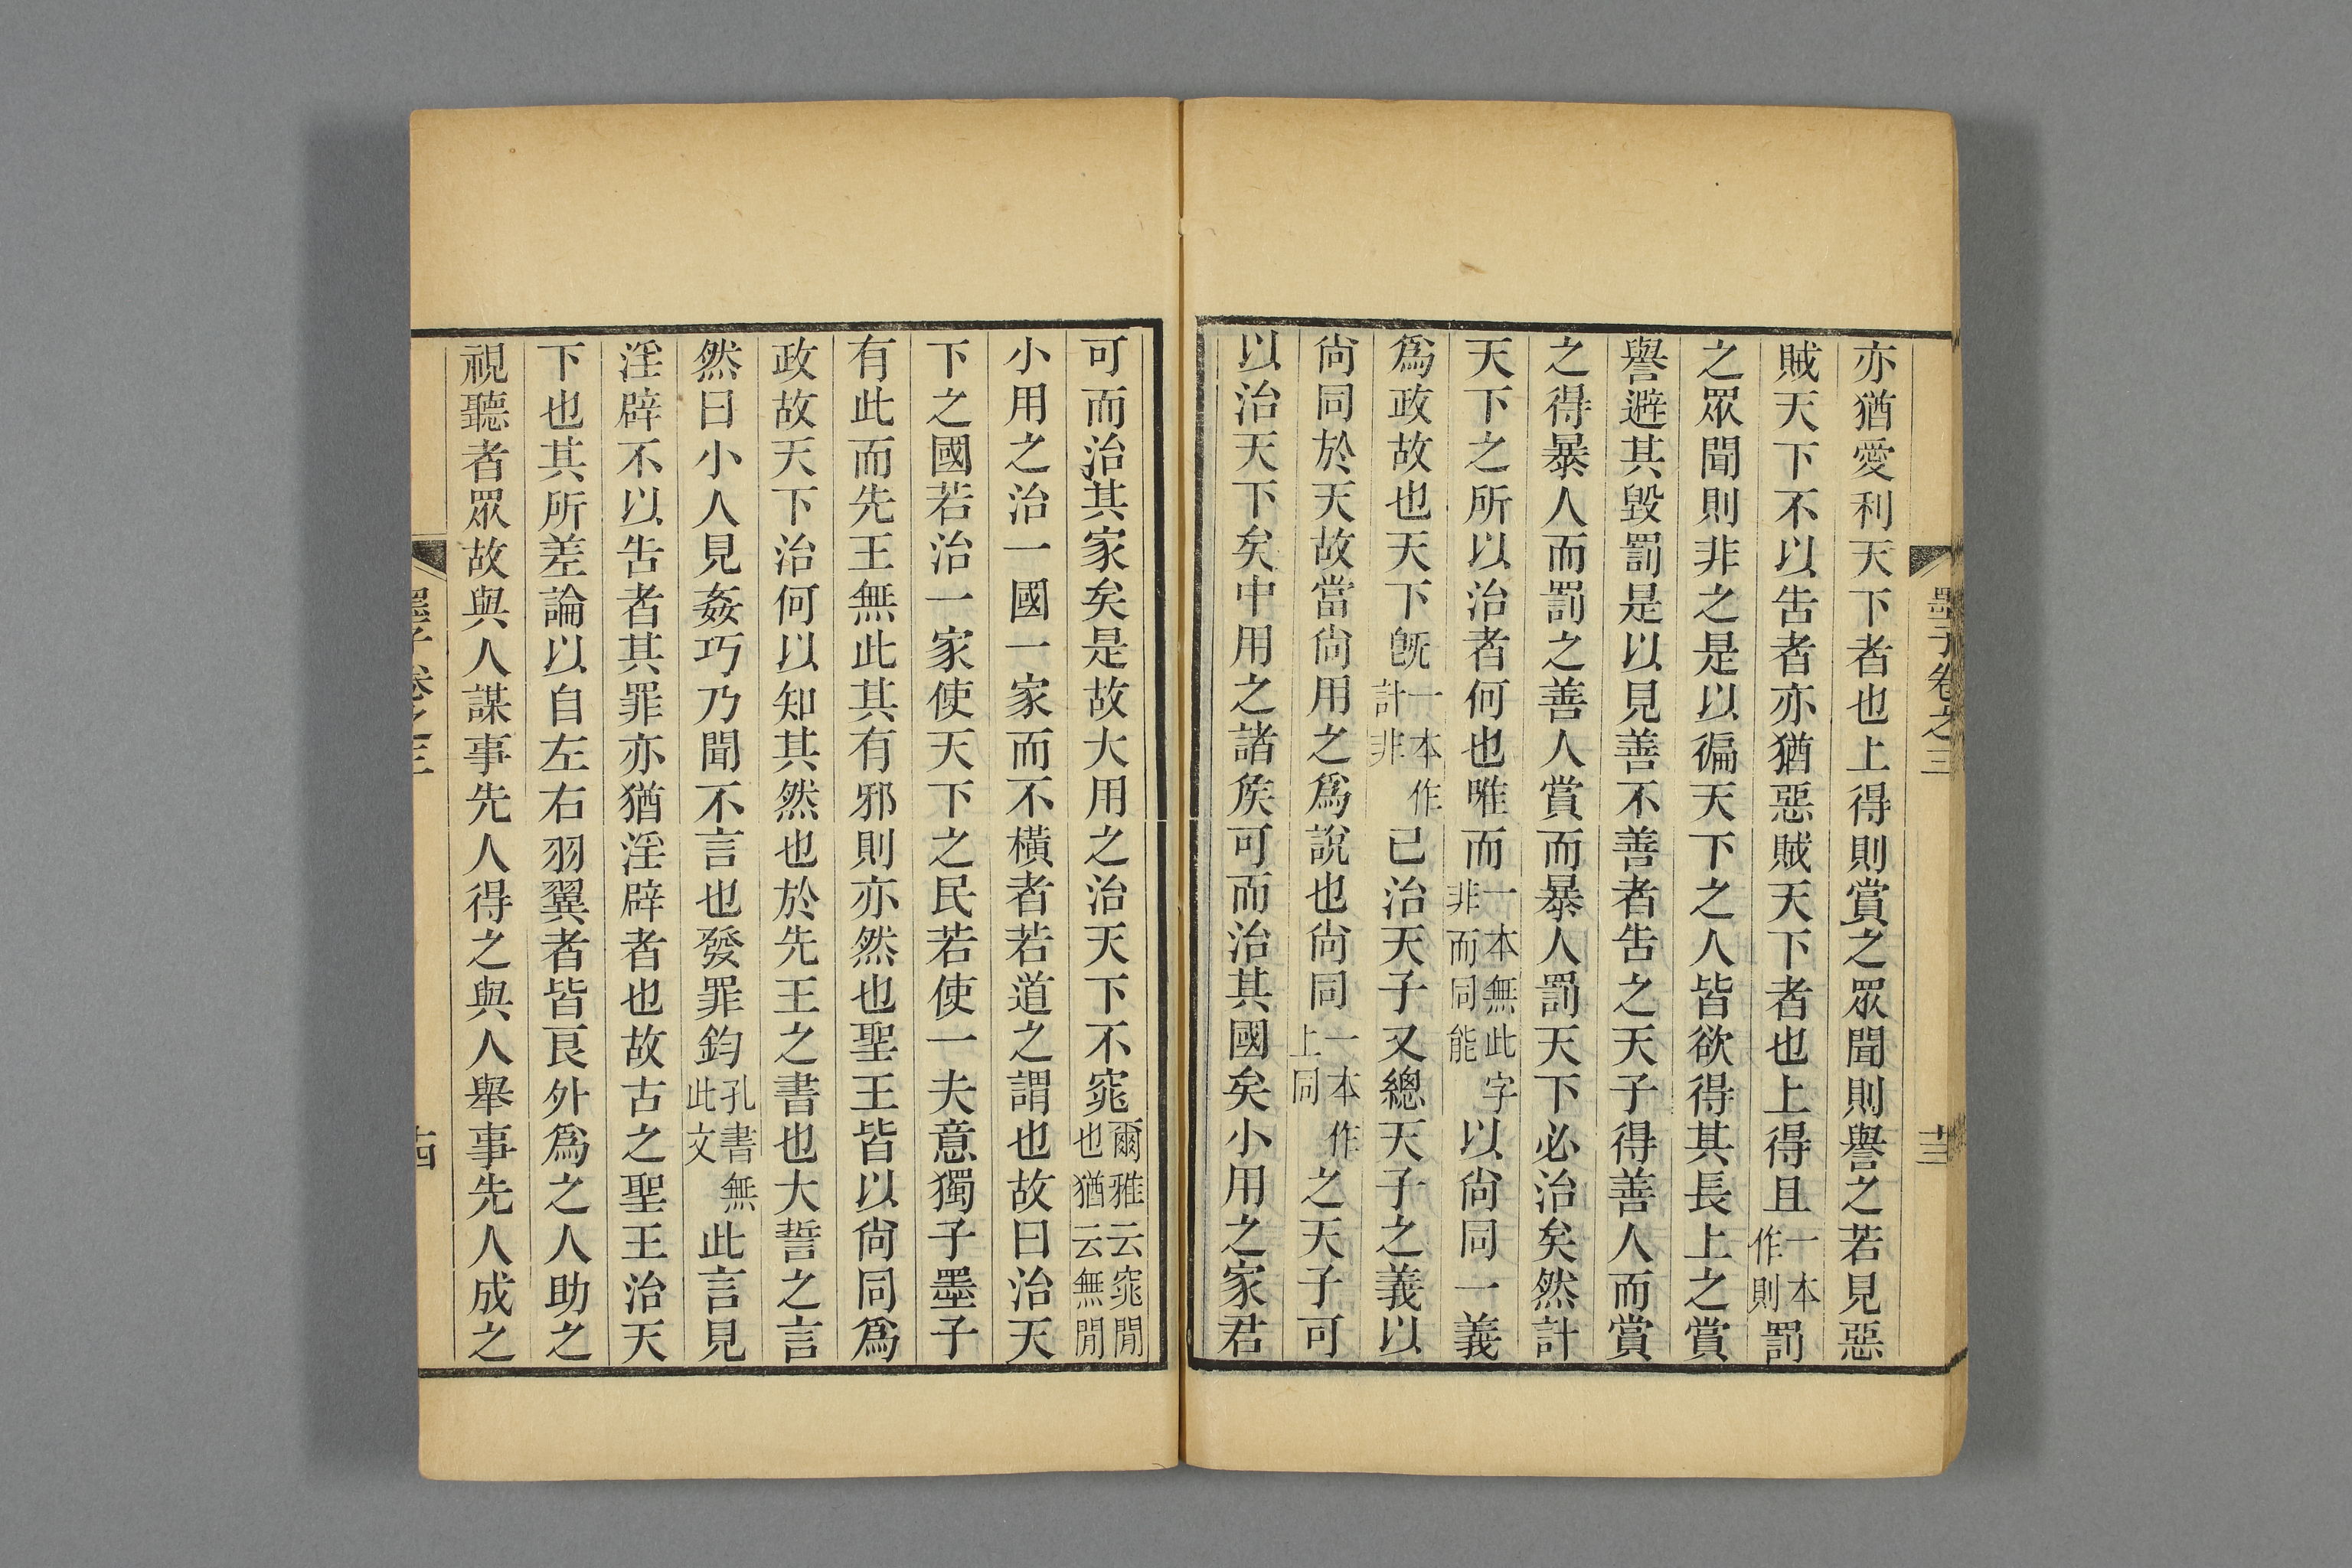 墨子卷之三
十三
亦猶愛利天下者也上得則賞之眾聞則譽之若見惡
賊天下不以告者亦猶惡賊天下者也上得且一本作則罰
之眾聞則非之是以徧天下之人皆欲得其長上之賞
譽避其毀罰是以見善不善者告之天子得善人而賞
之得暴人而罰之善人賞而暴人罰天下必治矣然計
天下之所以治者何也唯而一本無此字非而同能以尙同一義
爲政故也天下旣一本作計非已治天子又總天子之義以
尙同於天故當尙用之爲說也尙同一本作上同之天子可
以治天下矣中用之諸矦可而治其國矣小用之家君
可而治其家矣是故大用之治天下不窕爾雅云窕閒也猶云無閒
小用之治一國一家而不橫者若道之謂也故曰治天
下之國若治一家使天下之民若使一夫意獨子墨子
有此而先王無此其有邪則亦然也聖王皆以尙同爲
政故天下治何以知其然也於先王之書也大誓之言
然曰小人見姦巧乃聞不言也發罪鈞孔書無此文此言見
淫辟不以告者其罪亦猶淫辟者也故古之聖王治天
下也其所差論以自左右羽翼者皆良外爲之人助之
視聽者眾故與人謀事先人得之與人舉事先人成之
墨子卷之三
十四